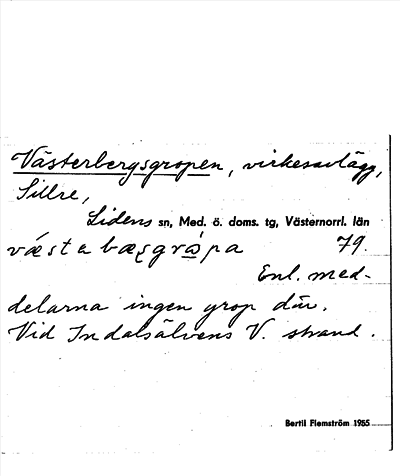 Västerbergsgropen, virkesavlägg,
Sillre,
Lidens sn, Med. ö. doms. tg, Västernorrl. län
79.
Enl. med-
delarna ingen grop där.
Vid Indalsälvens V. strand.
Bertil Flemström 1955